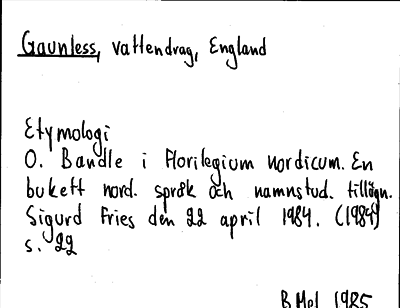 Gaunless, vattendrag, England
Etymologi
O. Bandle i Florilegium nordicum. En
bukett nord. språk och namnstud. tillägn.
Sigurd Fries den 22 april 1984. (1984)
s. 22
B Mel 1985